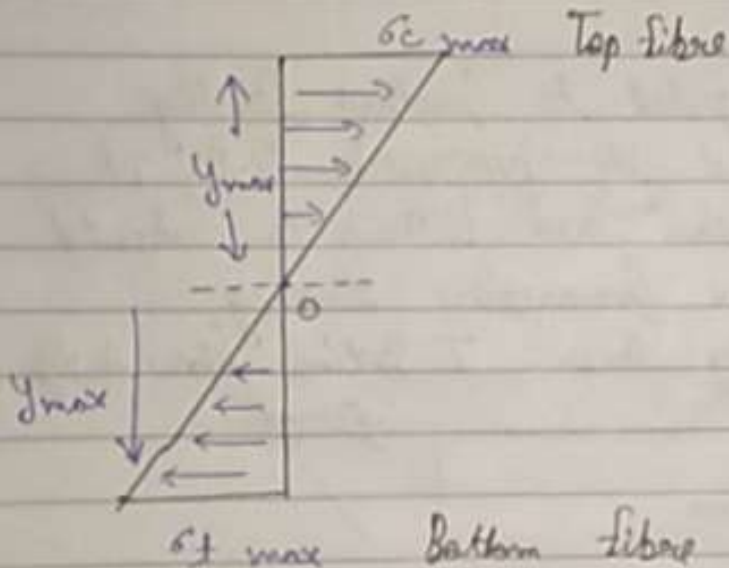 σc max Top fibre
ymax
0
ymax
σt max Bottom fibre